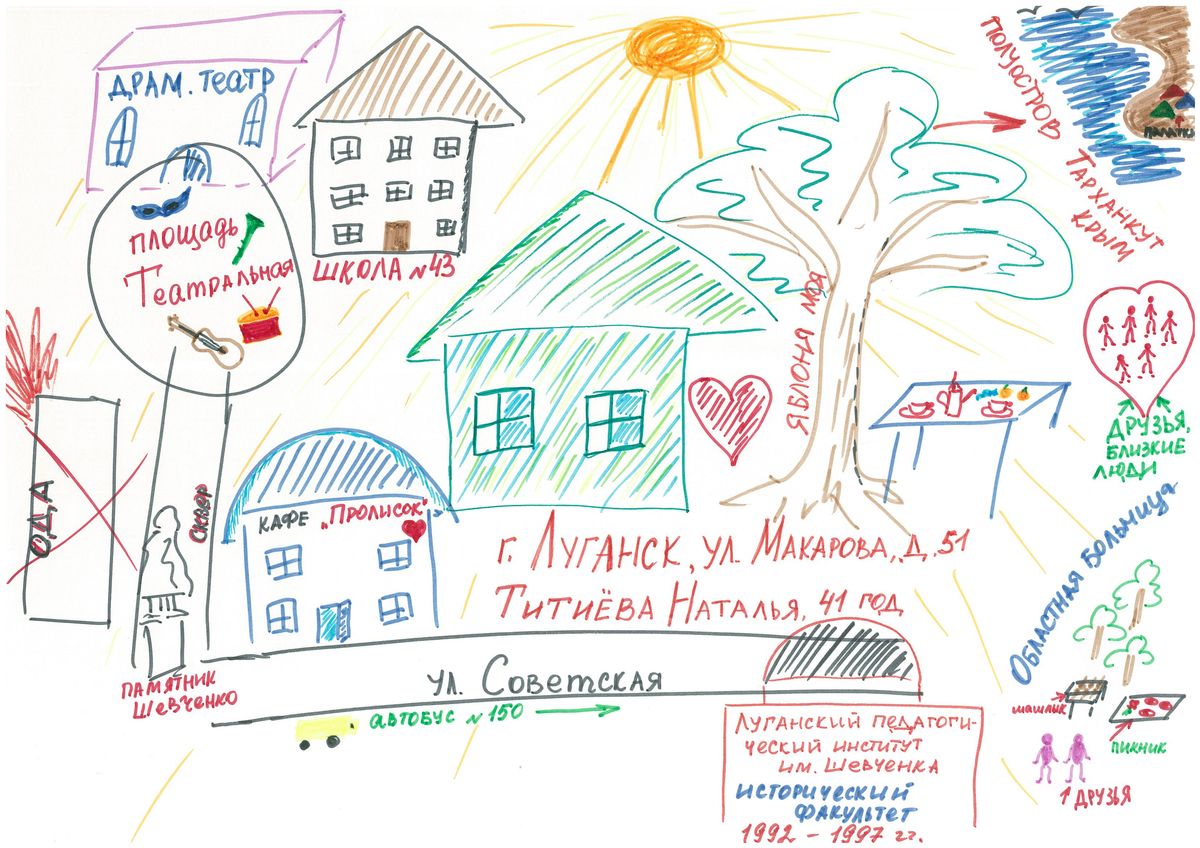 ДРАМ. ТЕАТР
ПЛОЩАДЬ
ТЕАТРАЛЬНАЯ
ШКОЛА №43
ПОЛУОСТРОВ ТАРХАНКУТ
КРЫМ
ПАЛАТКИ
ЯБЛОНЯ МОЯ
ДРУЗЬЯ,
БЛИЗКИЕ
ЛЮДИ
ОДА
СКВЕР
КАФЕ „ПРОЛИСОК"
г. ЛУГАНСК, УЛ. МАКАРОВА, Д. 51
ТИТИЁВА НАТАЛЬЯ, 41 ГОД
ПАМЯТНИК
ШЕВЧЕНКО
УЛ. СОВЕТСКАЯ
АВТОБУС №150
ЛУГАНСКИЙ ПЕДАГОГИ-
ЧЕСКИЙ ИНСТИТУТ
ИМ. ШЕВЧЕНКА
ИСТОРИЧЕСКИЙ
ФАКУЛЬТЕТ
1992 – 1997 гг.
ОБЛАСТНАЯ БОЛЬНИЦА
ШАШЛИК
ПИКНИК
ДРУЗЬЯ